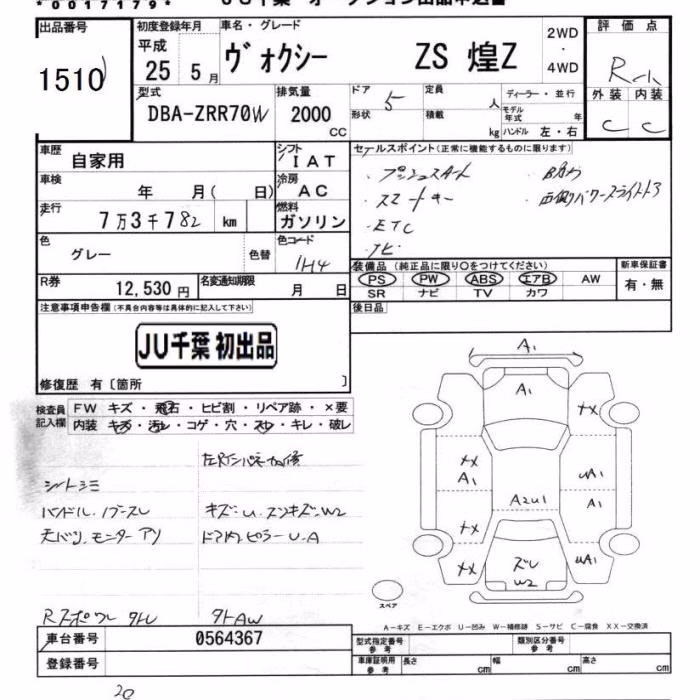 *00171179*
JU千葉 オークション出品申込書
出品番号
1510
初度登録年月
平成
25 5月
車名・グレード
ヴォクシー ZS 煌Z
2WD
・
4WD
評価点
外装 内装
C C
型式
DBA-ZRR70W
排気量
2000
CC
ドア
5
形状
定員
人
積載
kg
ディーラー・並行
モデル年式 年
ハンドル 左・右
車歴
自家用
シフト
IAT
セールスポイント(正常に機能するものに限ります)
・プッシュスタート ・Bカメ
・スマートキー ・両側パワースライドドア
・ETC
・ナビ
車検
年 月( 日)
冷房
AC
走行
7万3千782 km
燃料
ガソリン
色
グレー
色替
色コード
1H4
R券
12,530円
名変通知期限
月 日
装備品(純正品に限り○をつけてください)
PS PW ABS エアB AW
SR ナビ TV カワ
新車保証書
有・無
注意事項申告欄(不具合内容等は具体的に記入して下さい)
後日品
JU千葉 初出品
修復歴 有〔箇所 〕
検査員記入欄
FW キズ・飛石・ヒビ割・リペア跡・×要
内装 キズ・汚レ・コゲ・穴・スレ・キレ・破レ
シートシミ
ハンドル、ノブスレ キズ・U・スンキズ・W2
天バリ、モニターアリ ドア内ピラーU・A
外AW
A1
A1
XX
XX
A1
UA1
A2U1
A1
XX
XX
ズレ
W2
UA1
スペア
A-キズ E-エクボ U-凹み W-補修跡 S-サビ C-腐食 XX-交換済
車台番号
0564367
登録番号
型式指定番号
参考
類別区分番号
参考
車庫証明用
参考
長さ cm
幅 cm
高さ cm
20